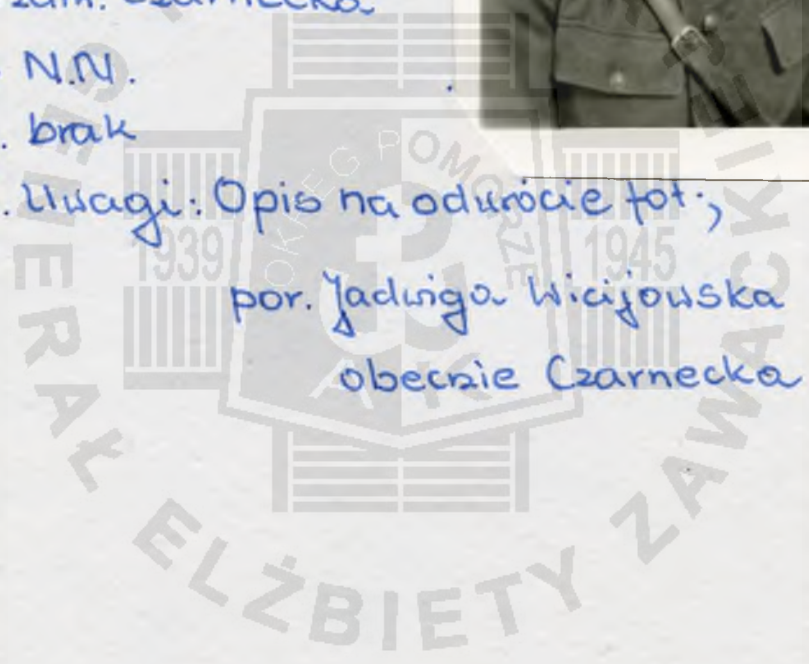 zam. Czarnecka
N.N.
. brak
. Uwagi: Opis na odwrocie fot.;
por. Jadwiga Wicijowska
obecnie Czarnecka
OKRĘG POMORZE
1939
1945
AK
GENERAŁ ELŻBIETY ZAWACKIE